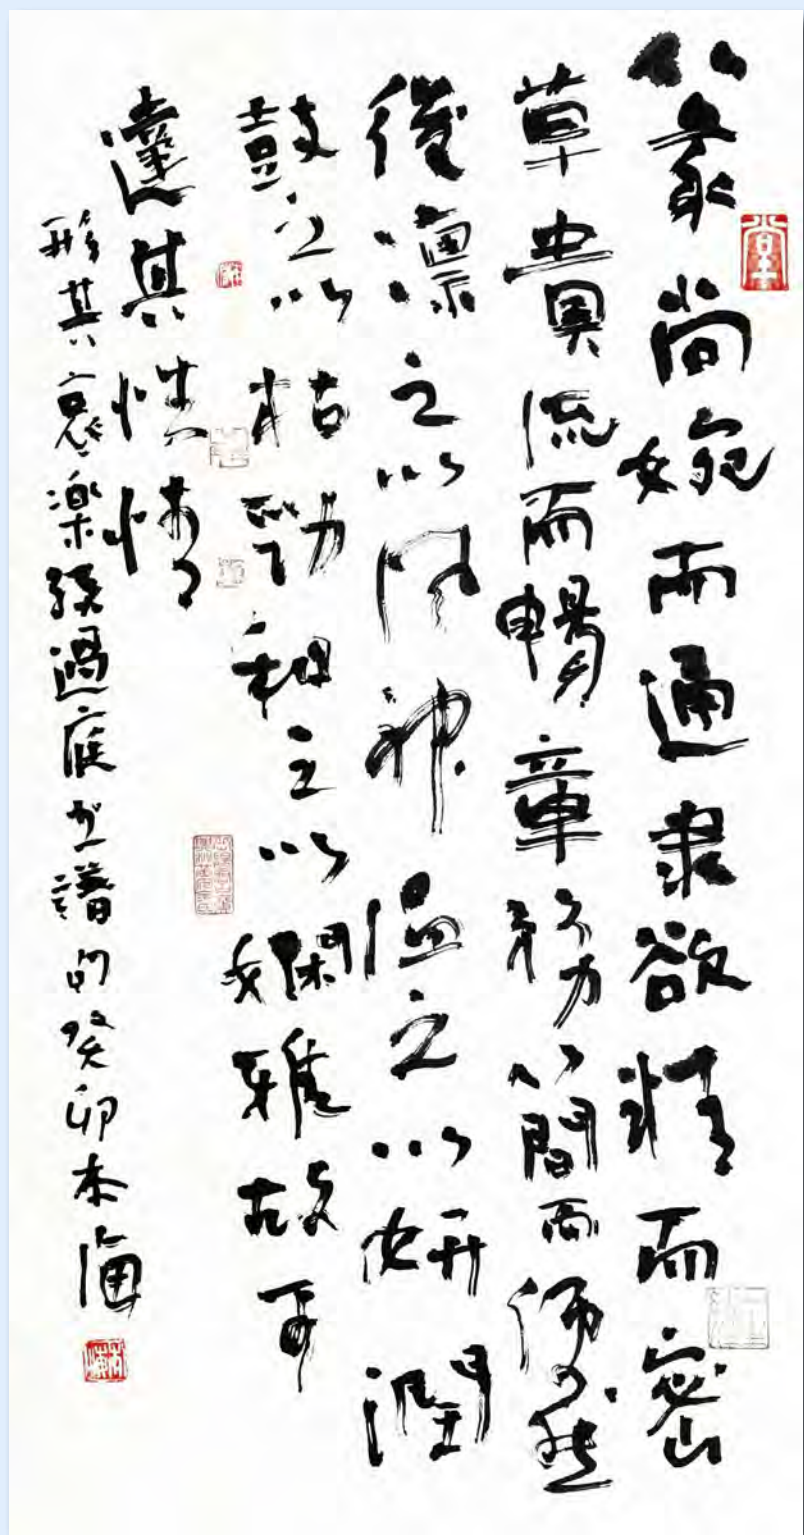 篆尚婉而通隸欲精而密
草貴流而暢章務簡而便然
後凛之以風神温之以妍潤
鼓之以枯勁和之以嫻雅故可
達其性情
形其哀樂孫過庭書譜句癸卯本海